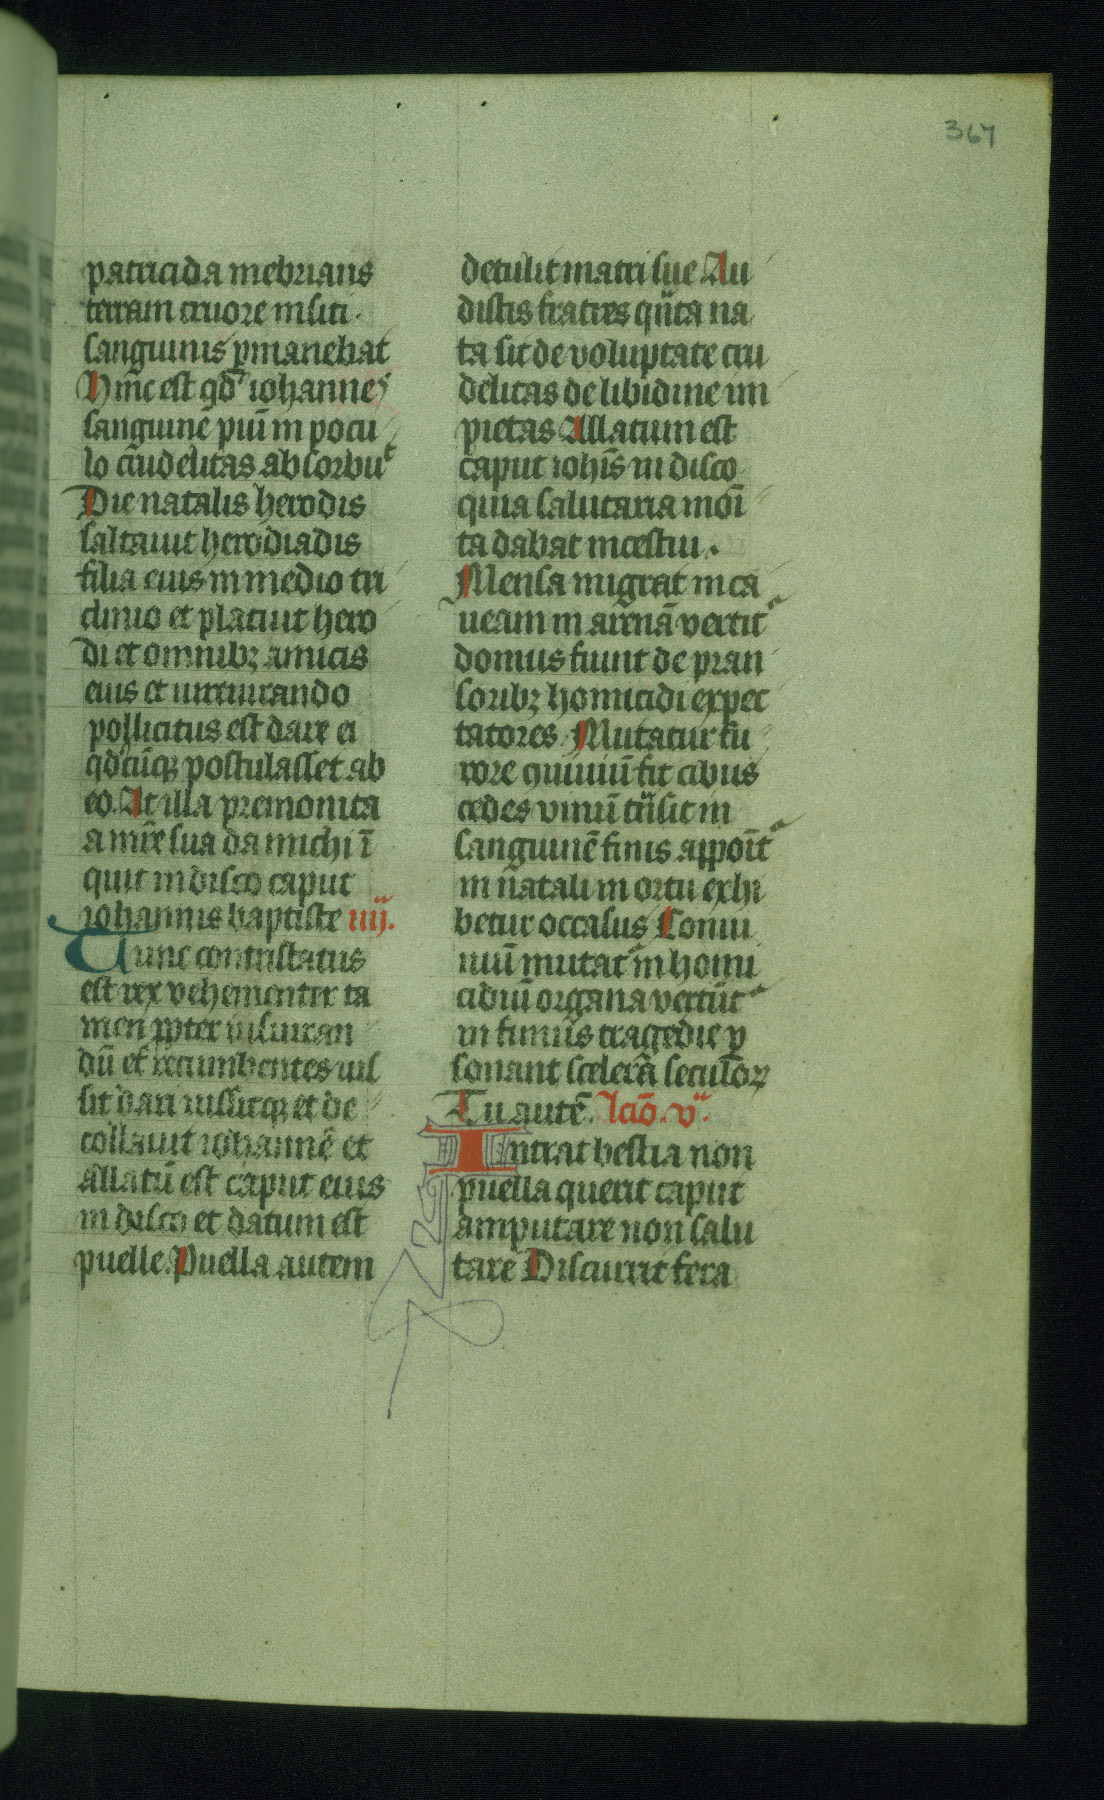 367
patricida inebrians
terram cruore insiti
sanguinis ꝑmanebat
Hinc est qd̛ iohannes
sanguinē piū in pocu
lo crudelitas absorbuᵗ
Die natalis herodis
saltauit herodiadis
filia eius in medio tri
clinio et placuit hero
di et omnibꝫ amicis
eius et iureiurando
pollicitus est dare ei
qd̛cūqꝫ postulasset ab
eo. At illa premonita
a mr̄e sua da michi ī
quit in disco caput
iohannis baptiste iiij.
Tunc contristatus
est rex vehementer ta
men ꝓpter iusiuran
dū et recumbentes ius
sit dari iussitqꝫ et de
collauit iohannē et
allatū est caput eius
in disco et datum est
puelle. Puella autem
detulit matri sue Au
distis fratres qn̄ta na
ta sit de voluptate cru
delitas de libidine im
pietas Allatum est
caput ioh̄is in disco
quia salutaria moni
ta dabat incestui.
Mensa migrat in ca
ueam in arenā vertit᷑
domus fiunt de pran
soribꝫ homicidi expec
tatores. Mutatur fu
rore conuiuiū fit cibus
cedes vinū trāsit in
sanguinē finis apponit᷑
in natali in ortu exhi
betur occasus Conui
uiū mutat᷑ in homi
cidiū organa vertūt᷑
in funus tragedie ꝑ
sonant scelera seculoꝝ
Tu autē. lcio. v͛ᵃ.
Intrat bestia non
puella querit caput
amputare non salu
tare Discurrit fera